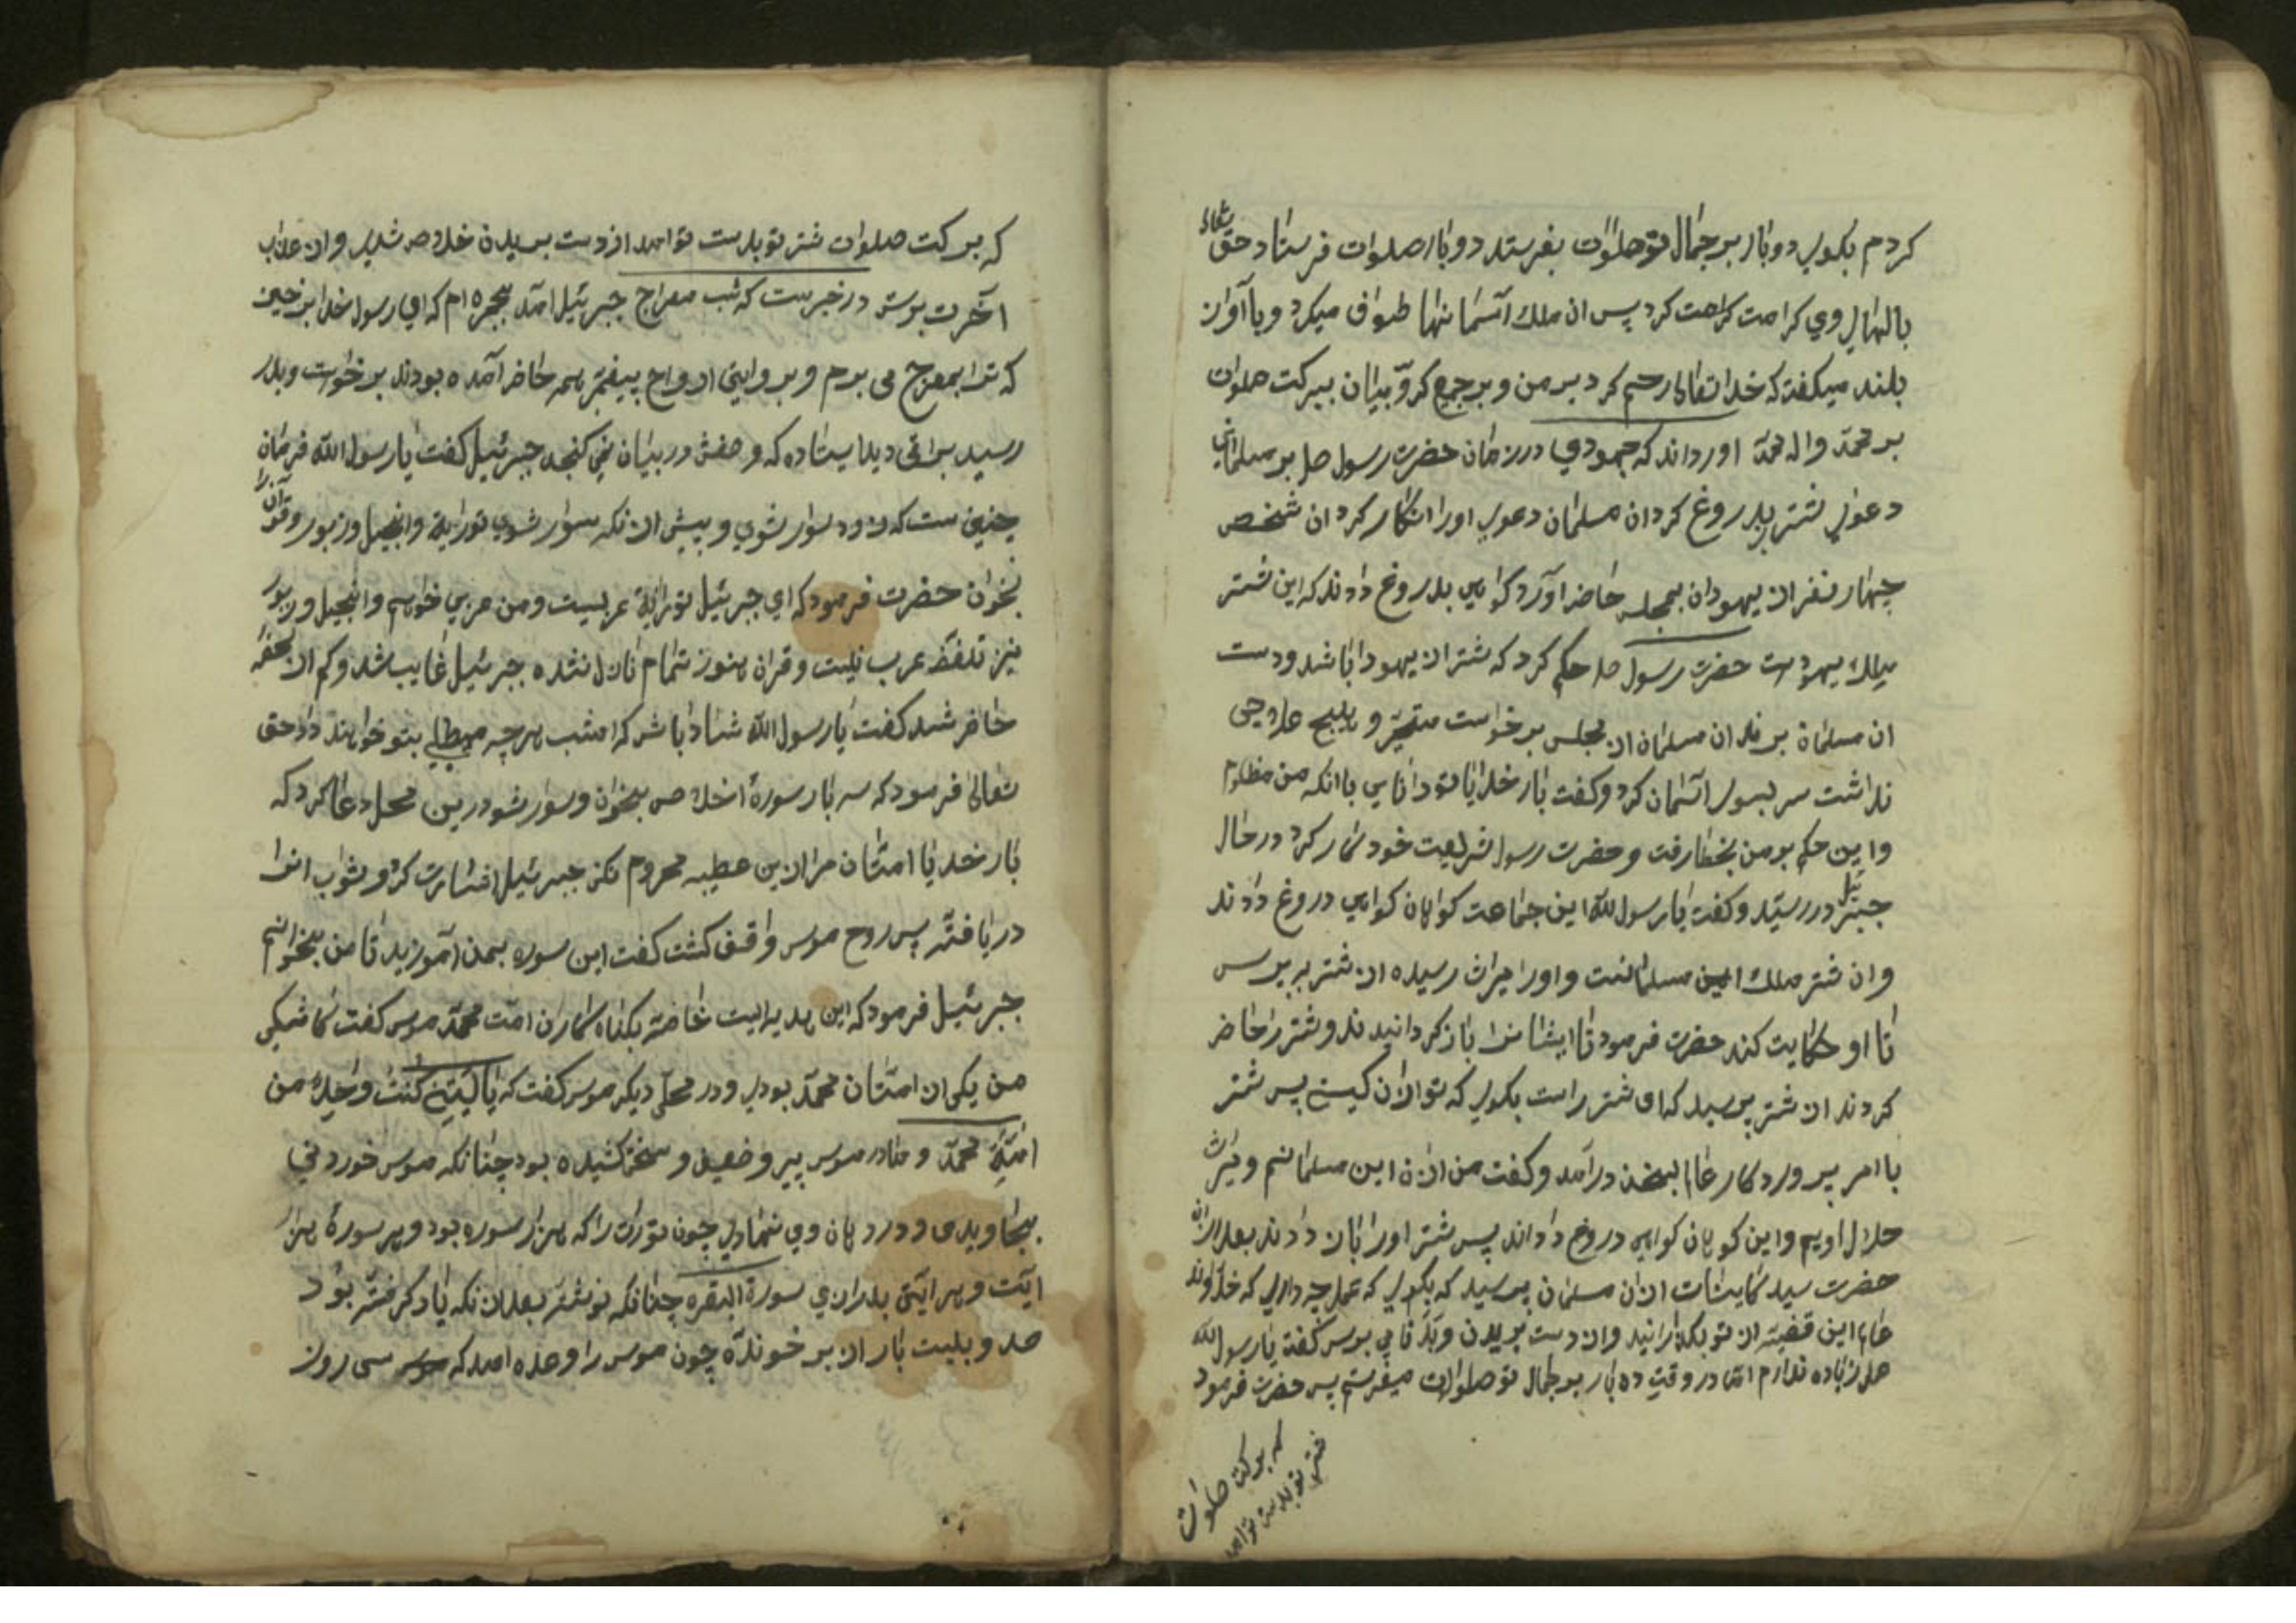 کردم بکوی دو بار بر جمال تو صلوات بفرستد دو بار صلوات فرستاد حق تعالی
بالهای وی کرامت کرد پس ان ملك آسمانها طواف میکرد و با آواز
بلند میکفت که خدا تعالی رحیم کرد بر من و بر جمیع کروبیان ببرکت صلوات
بر محمد وال محمد اورداند که جهودی در زمان حضرت رسول صل بر مسلمانی
دعوی شتر بدروغ کرد ان مسلمان دعوی اورا انکار کرد ان شخص
چهار نفر از یهودان بمجلس حاضر آورد کواهی بدروغ دادند که این شتر
ملك یهودست حضرت رسول صل حکم کرد که شتر از یهودا باشد ودست
ان مسلمان برند ان مسلمان از مجلس برخواست متحیر و بهیچ علاجی
نداشت سر بسوی آسمان کرد وکفت بار خدایا تو دانایی با انکه من مظلوم
واین حکم بر من بخطا رفت و حضرت رسول شریعت خود کار کرد در حال
جبرئیل در رسید وکفت یا رسول الله این جماعت کواهان کواهی دروغ دادند
وان شتر ملك این مسلمانست واورا میراث رسیده از شتر بپرس
تا او حکایت کند حضرت فرمود تا ایشانرا باز کردانیدند وشتر را حاضر
کردند از شتر پرسید که ای شتر راست بکوی که تو ازان کیستی پس شتر
با امر پروردکار عالم بسخن درآمد وکفت من ازان این مسلمانم ومیراث
حلال اویم واین کوهان کواهی دروغ داداند پس شتر اورا باز دادند بعد ازان
حضرت سید کاینات ازان مسلمان پرسید که بکوی که عمل چه داری که خداوند
عالم این قضیه از تو بکذرانید وان دست بریدن وبدنامی پرس کفت یا رسول الله
عمل زیاده ندارم اما در وقت ده بار بر جمال تو صلوات میفرستم پس حضرت فرمود
که برکت صلوات
شتر تو بدست توامد
که ببرکت صلوات شتر تو بدست توامد از دست بریدن خلاص شدی وان عذاب
آخرت برستی در خبرست که شب معراج جبرئیل آمد بحجره ام که ای رسول خدا برخیز
که ترا بمعراج می برم وبروایتی ارواح پیغمبر همه حاضر آمده بودند برخواست وبدر
رسید براقی دید ایستاده که وصفش در بیان نمی کنجد جبرئیل کفت یا رسول الله فرمان
چنین ست که زود سوار شوی و پیش از انکه سوار شوی توراية وانجیل وزبور وقرآن را
بخوان حضرت فرمود که ای جبرئیل توراية عربیست ومن عربی خوانم وانجیل وزبور
نیز تلفظ عرب نیست وقران هنوز تمام نازل نشده جبرئیل غایب شد وکم از لحظه
حاضر شد کفت یا رسول الله شاد باش که امشب هرچه میطلبی بتو خواهند داد حق
تعالی فرمود که سه بار سورهٔ اخلاص بخوان وسوار شو درین محل دعا کرد که
بار خدایا امتان مرا ازین عطیه محروم نکن جبرئیل اشارت کرد وثواب انرا
دریافته پس روح موسی واقف کشت کفت این سوره بمن آموزید تا من بخوانم
جبرئیل فرمود که این هدیه ایست خاصه بکناه کاران امت محمد موسی کفت کاشکی
من یکی از امتان محمد بودی ودر محلی دیکر موسی کفت که یالیتنی کنت واحدٌ من
امّةِ محمد ومادر موسی پیر وضعیف وسخن کشیده بود چنانکه موسی خوردنی
بجا وبدی ودر دهان وی نهادی چون تورات را که هزار سوره بود وهر سورهٔ هزار
ایت وهر ایتی بدرازی سورة البقره چنانکه نوشته بعد از نکه یاد کرفته بود
صد وبیست بار از بر خوندآه چون موسی را وعده امد که سی روز